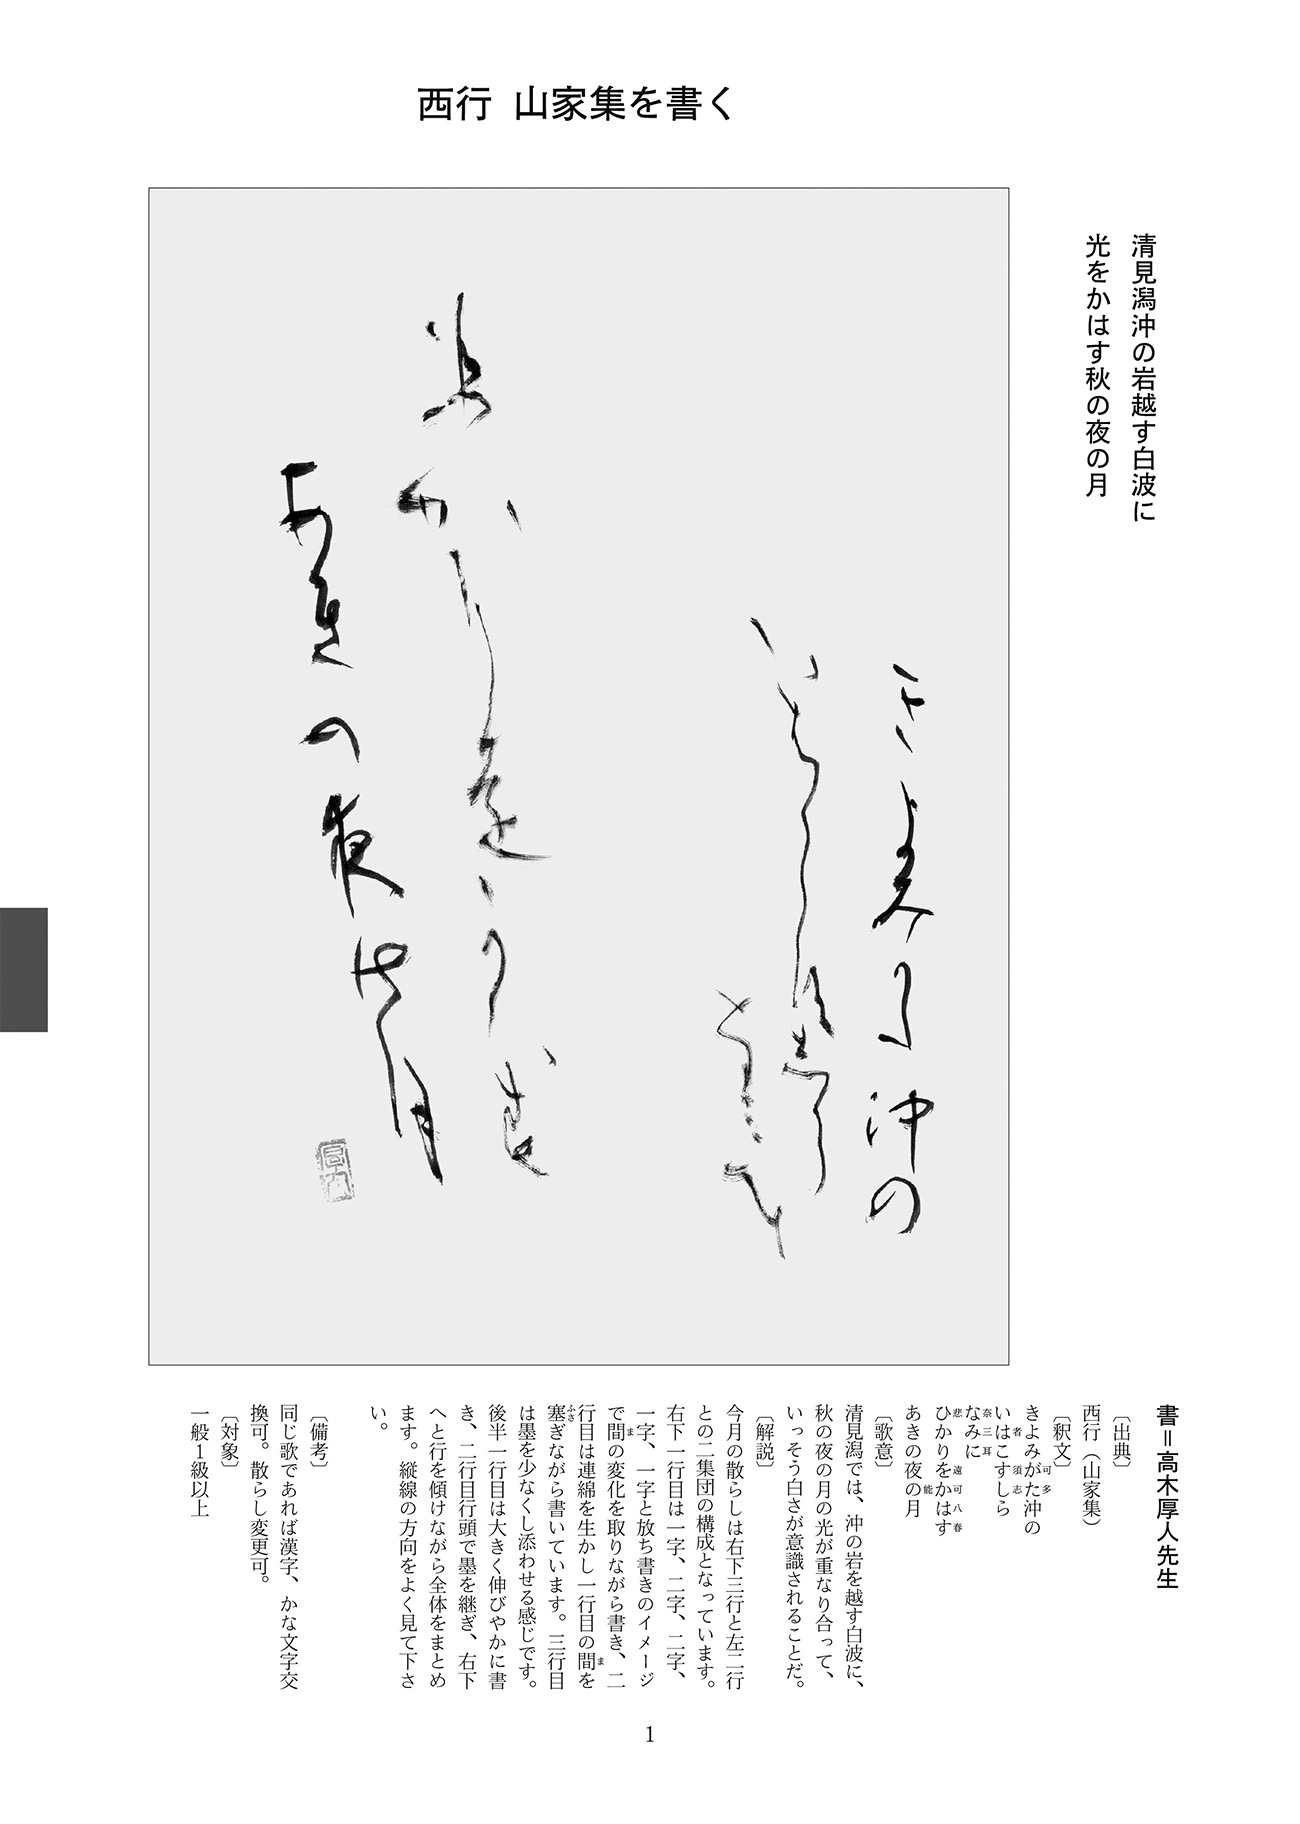 西行 山家集を書く
清見潟沖の岩越す白波に
光をかはす秋の夜の月
きよみ可多沖の
い者こ須志ら
奈三耳
悲かり遠可八春
あきの夜能月
書＝高木厚人先生
〔出典〕
西行（山家集）
〔釈文〕
きよみがた沖の
可多
いはこすしら
者須志
なみに
奈三耳
ひかりをかはす
悲遠可八春
あきの夜の月
能
〔歌意〕
清見潟では、沖の岩を越す白波に、
秋の夜の月の光が重なり合って、
いっそう白さが意識されることだ。
〔解説〕
今月の散らしは右下三行と左二行
との二集団の構成となっています。
右下一行目は一字、二字、二字、
一字、一字と放ち書きのイメージ
で間の変化を取りながら書き、二
ま
行目は連綿を生かし一行目の間を
ま
塞ぎながら書いています。三行目
ふさ
は墨を少なくし添わせる感じです。
後半一行目は大きく伸びやかに書
き、二行目行頭で墨を継ぎ、右下
へと行を傾けながら全体をまとめ
ます。縦線の方向をよく見て下さ
い。
〔備考〕
同じ歌であれば漢字、かな文字交
換可。散らし変更可。
〔対象〕
一般１級以上
1